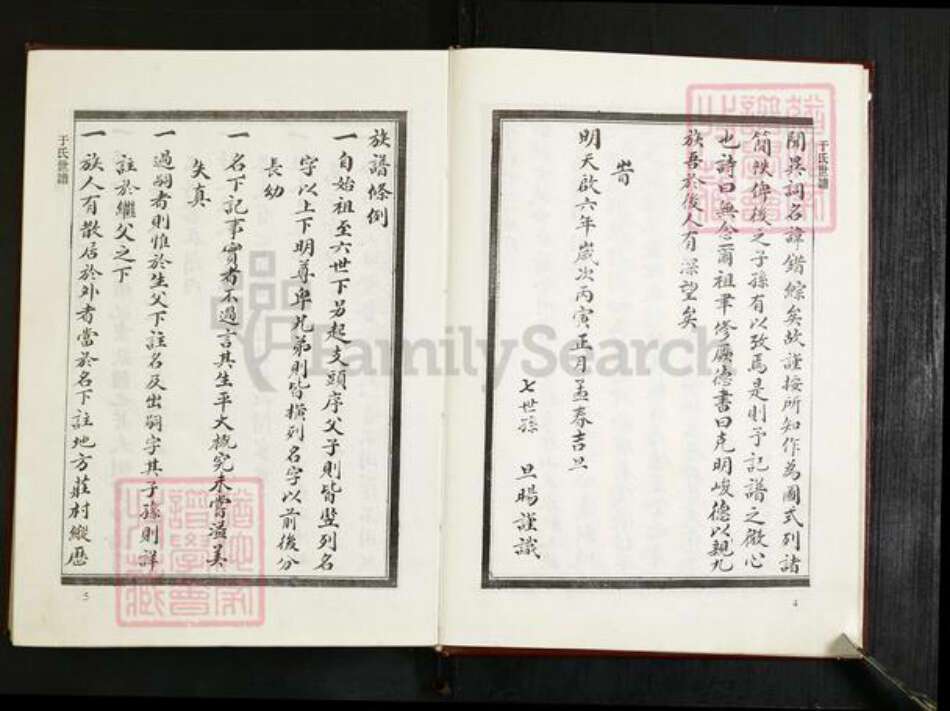 于氏世譜
聞異詞名諱錯綜矣故謹按所知作為圖式列諸
簡帙俾後之子孫有以攷焉是則予記譜之微心
也詩曰無念爾祖聿修厥德書曰克明峻德以親九
族吾於後人有深望矣
旹
明天啟六年歲次丙寅正月孟春吉旦
七世孫 旦暘謹識
4
族譜條例
一自始祖至六世下另起支頭序父子則皆豎列名
字以上下明尊卑兄弟則皆橫列名字以前後分
長幼
一名下記事實者不過言其生平大概究未嘗溢美
失真
一過嗣者則惟於生父下註名及出嗣字其子孫則詳
註於繼父之下
一族人有散居於外者當於名下註地方莊村縱歷
于氏世譜
5
FamilySearch